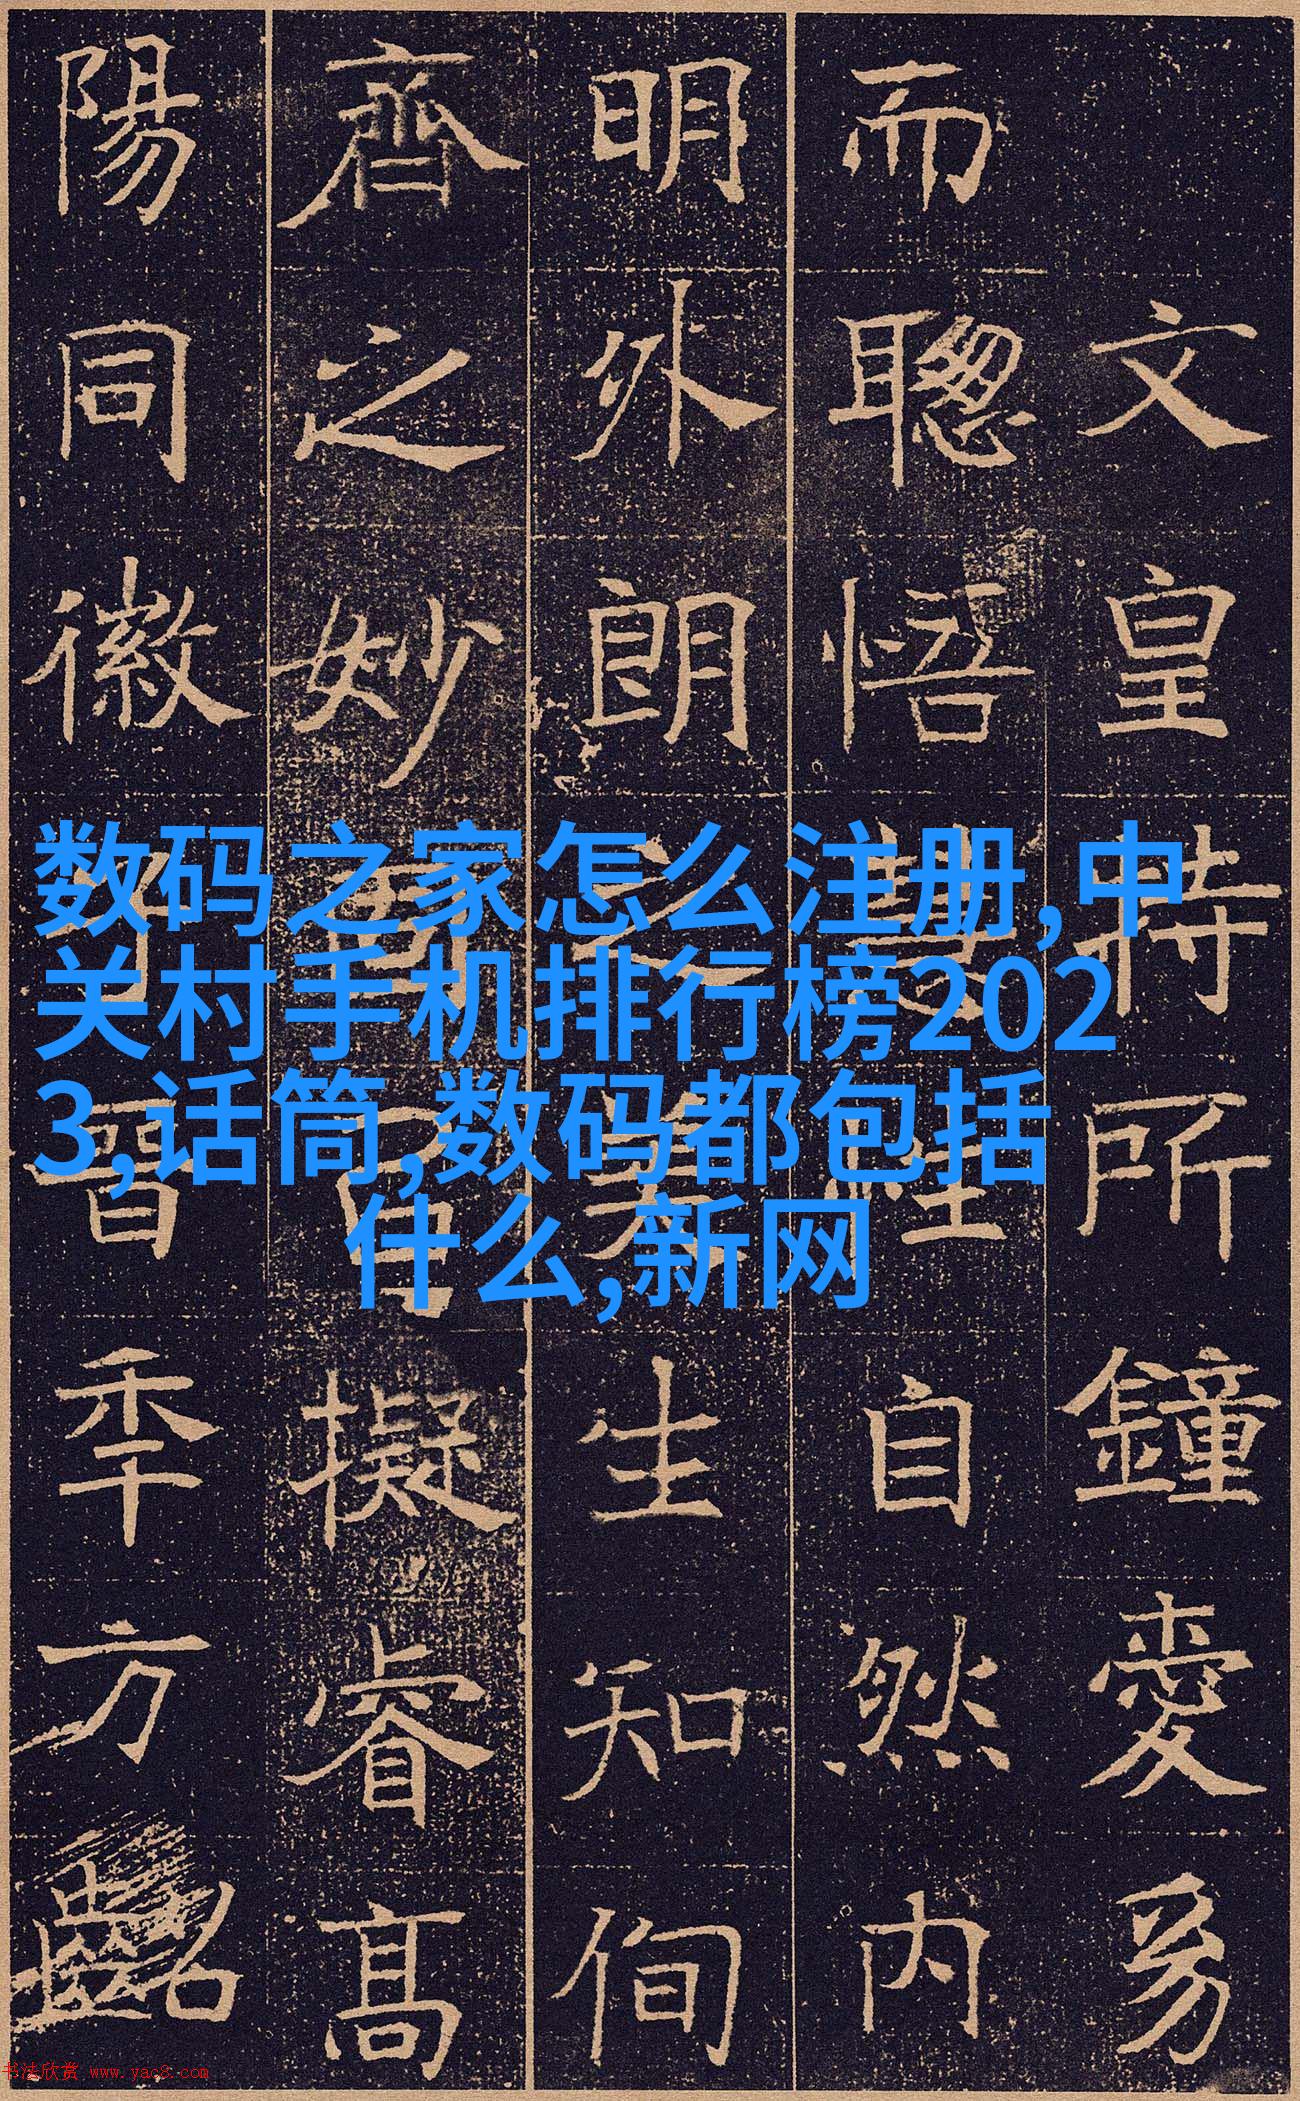 文皇特所鐘愛
而聰悟慧性自然内
明外朗生知徇
齊之妙擬睿高
陽同徽晉季方齠
数码之家怎么注册,中
关村手机排行榜202
3,话筒,数码都包括
什么,新网
书法欣赏 www.yac8.com